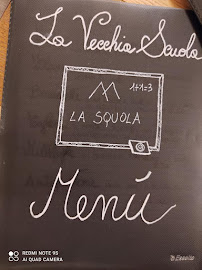 La Vecchia Scuola
1+1=3
LA SQUOLA
Menú
REDMI NOTE 9S
AI QUAD CAMERA